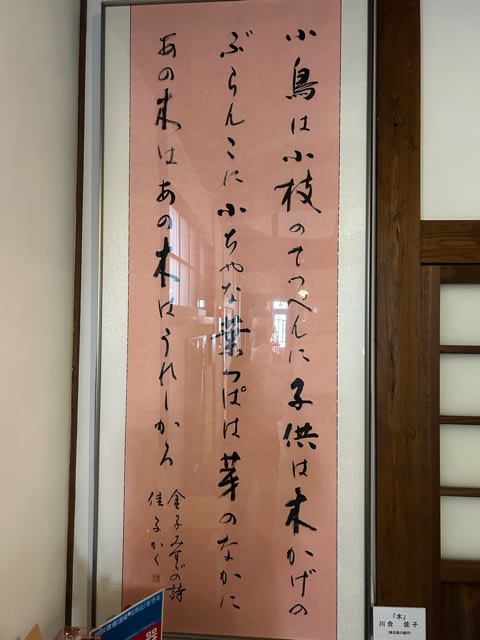 小鳥は小枝のてっぺんに子供は木かげの
ぶらんこに小ちゃな葉っぱは芽のなかに
あの木はあの木はうれしかろ
金子みすゞの詩
佳子かく
「木」
川合 佳子